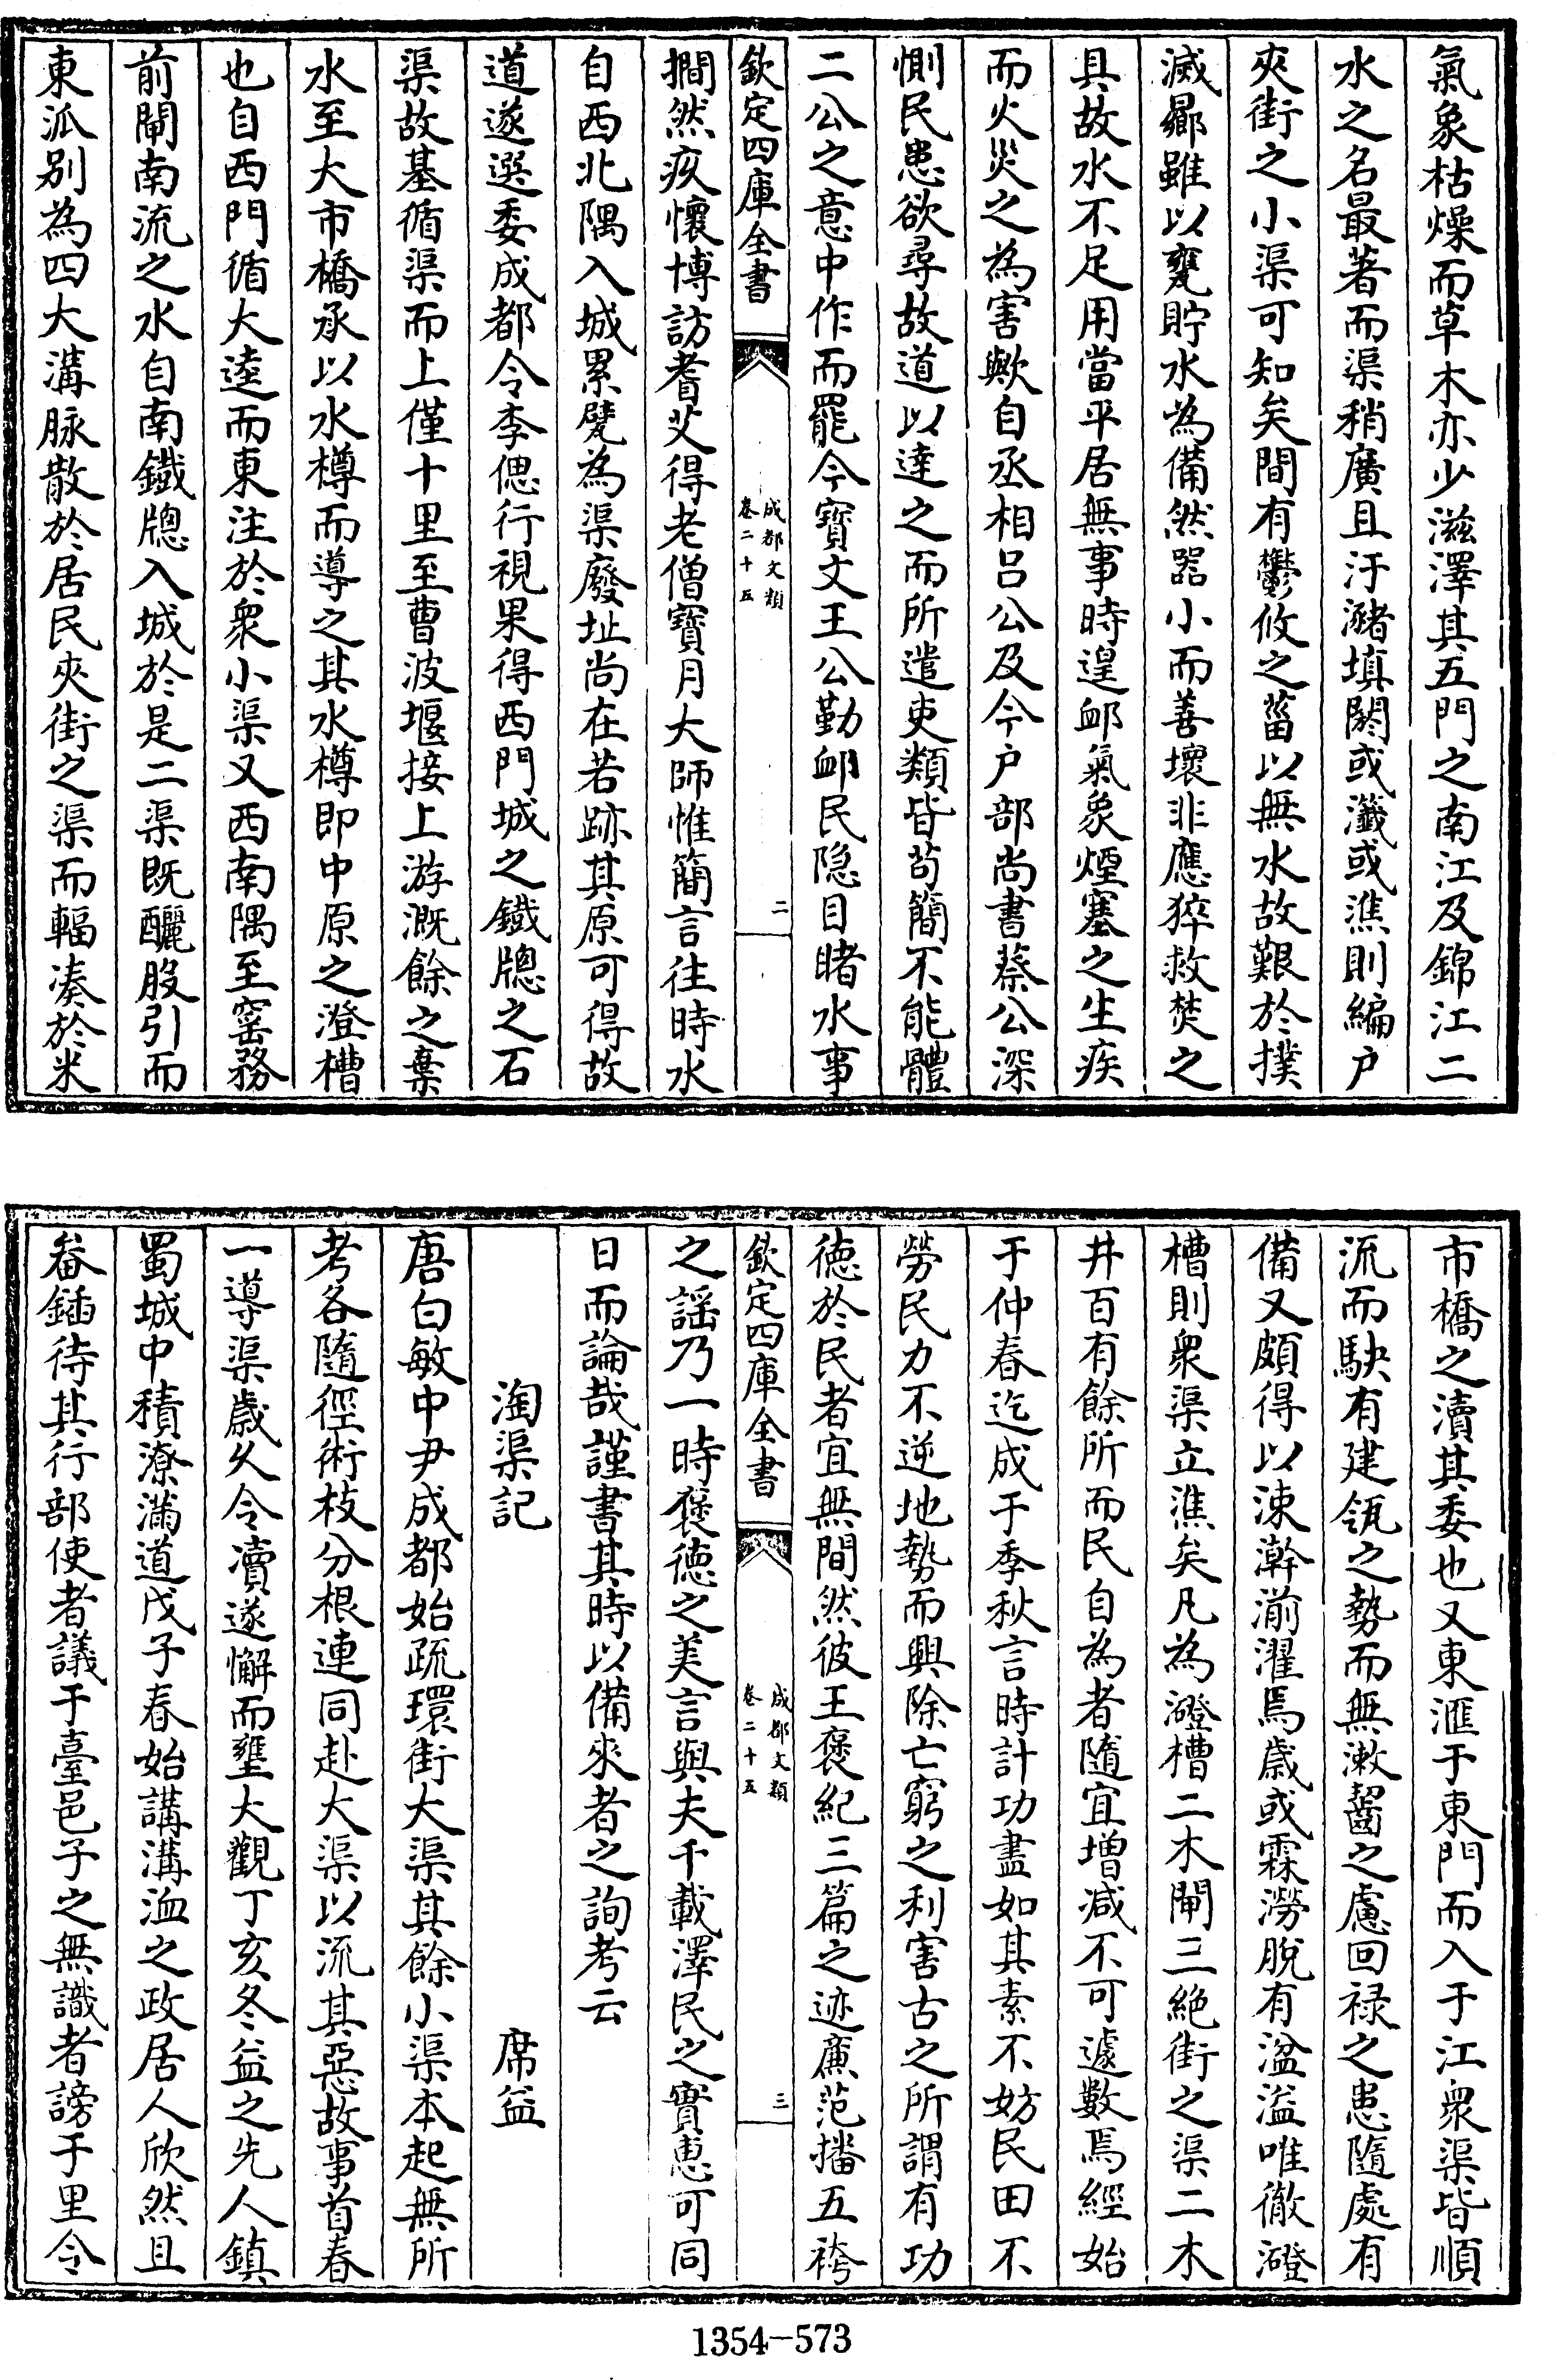 氣象枯燥而草木亦少滋澤其五門之南江及錦江二
水之名最著而渠稍廣且汙瀦填閼或瀸或潐則編户
夾街之小渠可知矣間有鬱攸之菑以無水故艱於撲
滅鄉雖以甕貯水為備然器小而善壞非應猝救焚之
具故水不足用當平居無事時遑卹氣象煙塞之生疾
而火災之為害歟自丞相呂公及今户部尚書蔡公深
惻民患欲尋故道以達之而所遣吏類皆苟簡不能體
二公之意中作而罷今寶文王公勤卹民隐目睹水事
欽定四庫全書
成都文類
卷二十五
二
撊然疚懷博訪耆艾得老僧寶月大師惟簡言往時水
自西北隅入城累甓為渠廢址尚在若跡其原可得故
道遂選委成都令李偲行視果得西門城之鐵牎之石
渠故基循渠而上僅十里至曹波堰接上游溉餘之棄
水至大市橋承以水樽而導之其水樽即中原之澄槽
也自西門循大逵而東注於衆小渠又西南隅至窰務
前閘南流之水自南鐵牎入城於是二渠既釃股引而
東派别為四大溝脉散於居民夾街之渠而輻凑於米
市橋之瀆其委也又東滙于東門而入于江衆渠皆順
流而駃有建瓴之勢而無潄齧之慮回禄之患隨處有
備又頗得以涑澣湔濯焉歲或霖澇脫有湓溢唯徹澄
槽則衆渠立潐矣凡為澄槽二木閘三絶街之渠二木
井百有餘所而民自為者隨宜增減不可遽數焉經始
于仲春迄成于季秋言時計功盡如其素不妨民田不
勞民力不逆地勢而興除亡窮之利害古之所謂有功
德於民者宜無間然彼王褒紀三篇之迹廉范播五袴
欽定四庫全書
成都文類
卷二十五
三
之謡乃一時褒德之美言與夫千載澤民之實恵可同
日而論哉謹書其時以備來者之詢考云
淘渠記　席益
唐白敏中尹成都始疏環街大渠其餘小渠本起無所
考各隨徑術枝分根連同赴大渠以流其惡故事首春
一導渠歲久令瀆遂懈而壅大觀丁亥冬益之先人鎮
蜀城中積潦滿道戊子春始講溝洫之政居人欣然且
畚鍤待其行部使者議于臺邑子之無識者謗于里令
1354-573